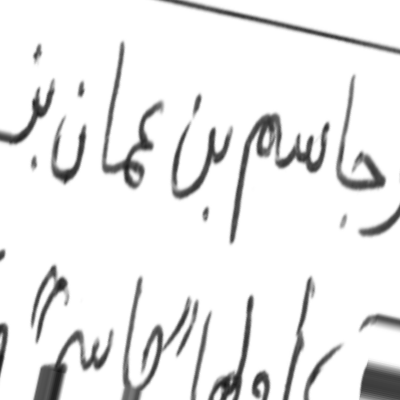 وجاسم بن عمان بن
أولها "جاسم"